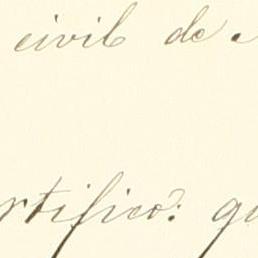 civil de
rtifico: qu